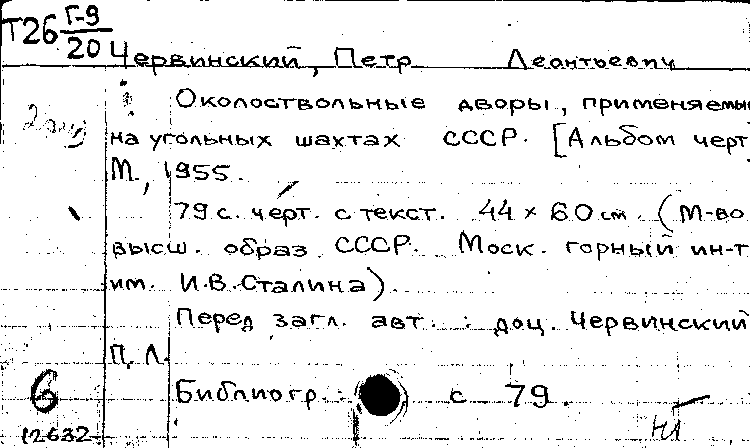 Т26 Г-9/20
Червинский, Петр Леонтьевич
Околоствольные дворы, применяемы
на угольных шахтах СССР. [Альбом черт
М., 1955.
79 с. черт. с текст. 44 × 60 см. (М-во
высш. образ. СССР. Моск. горный ин-т
им. И.В. Сталина).
Перед загл. авт. : доц. Червинский
П. Л.
Библиогр.: с 79.
6
12632